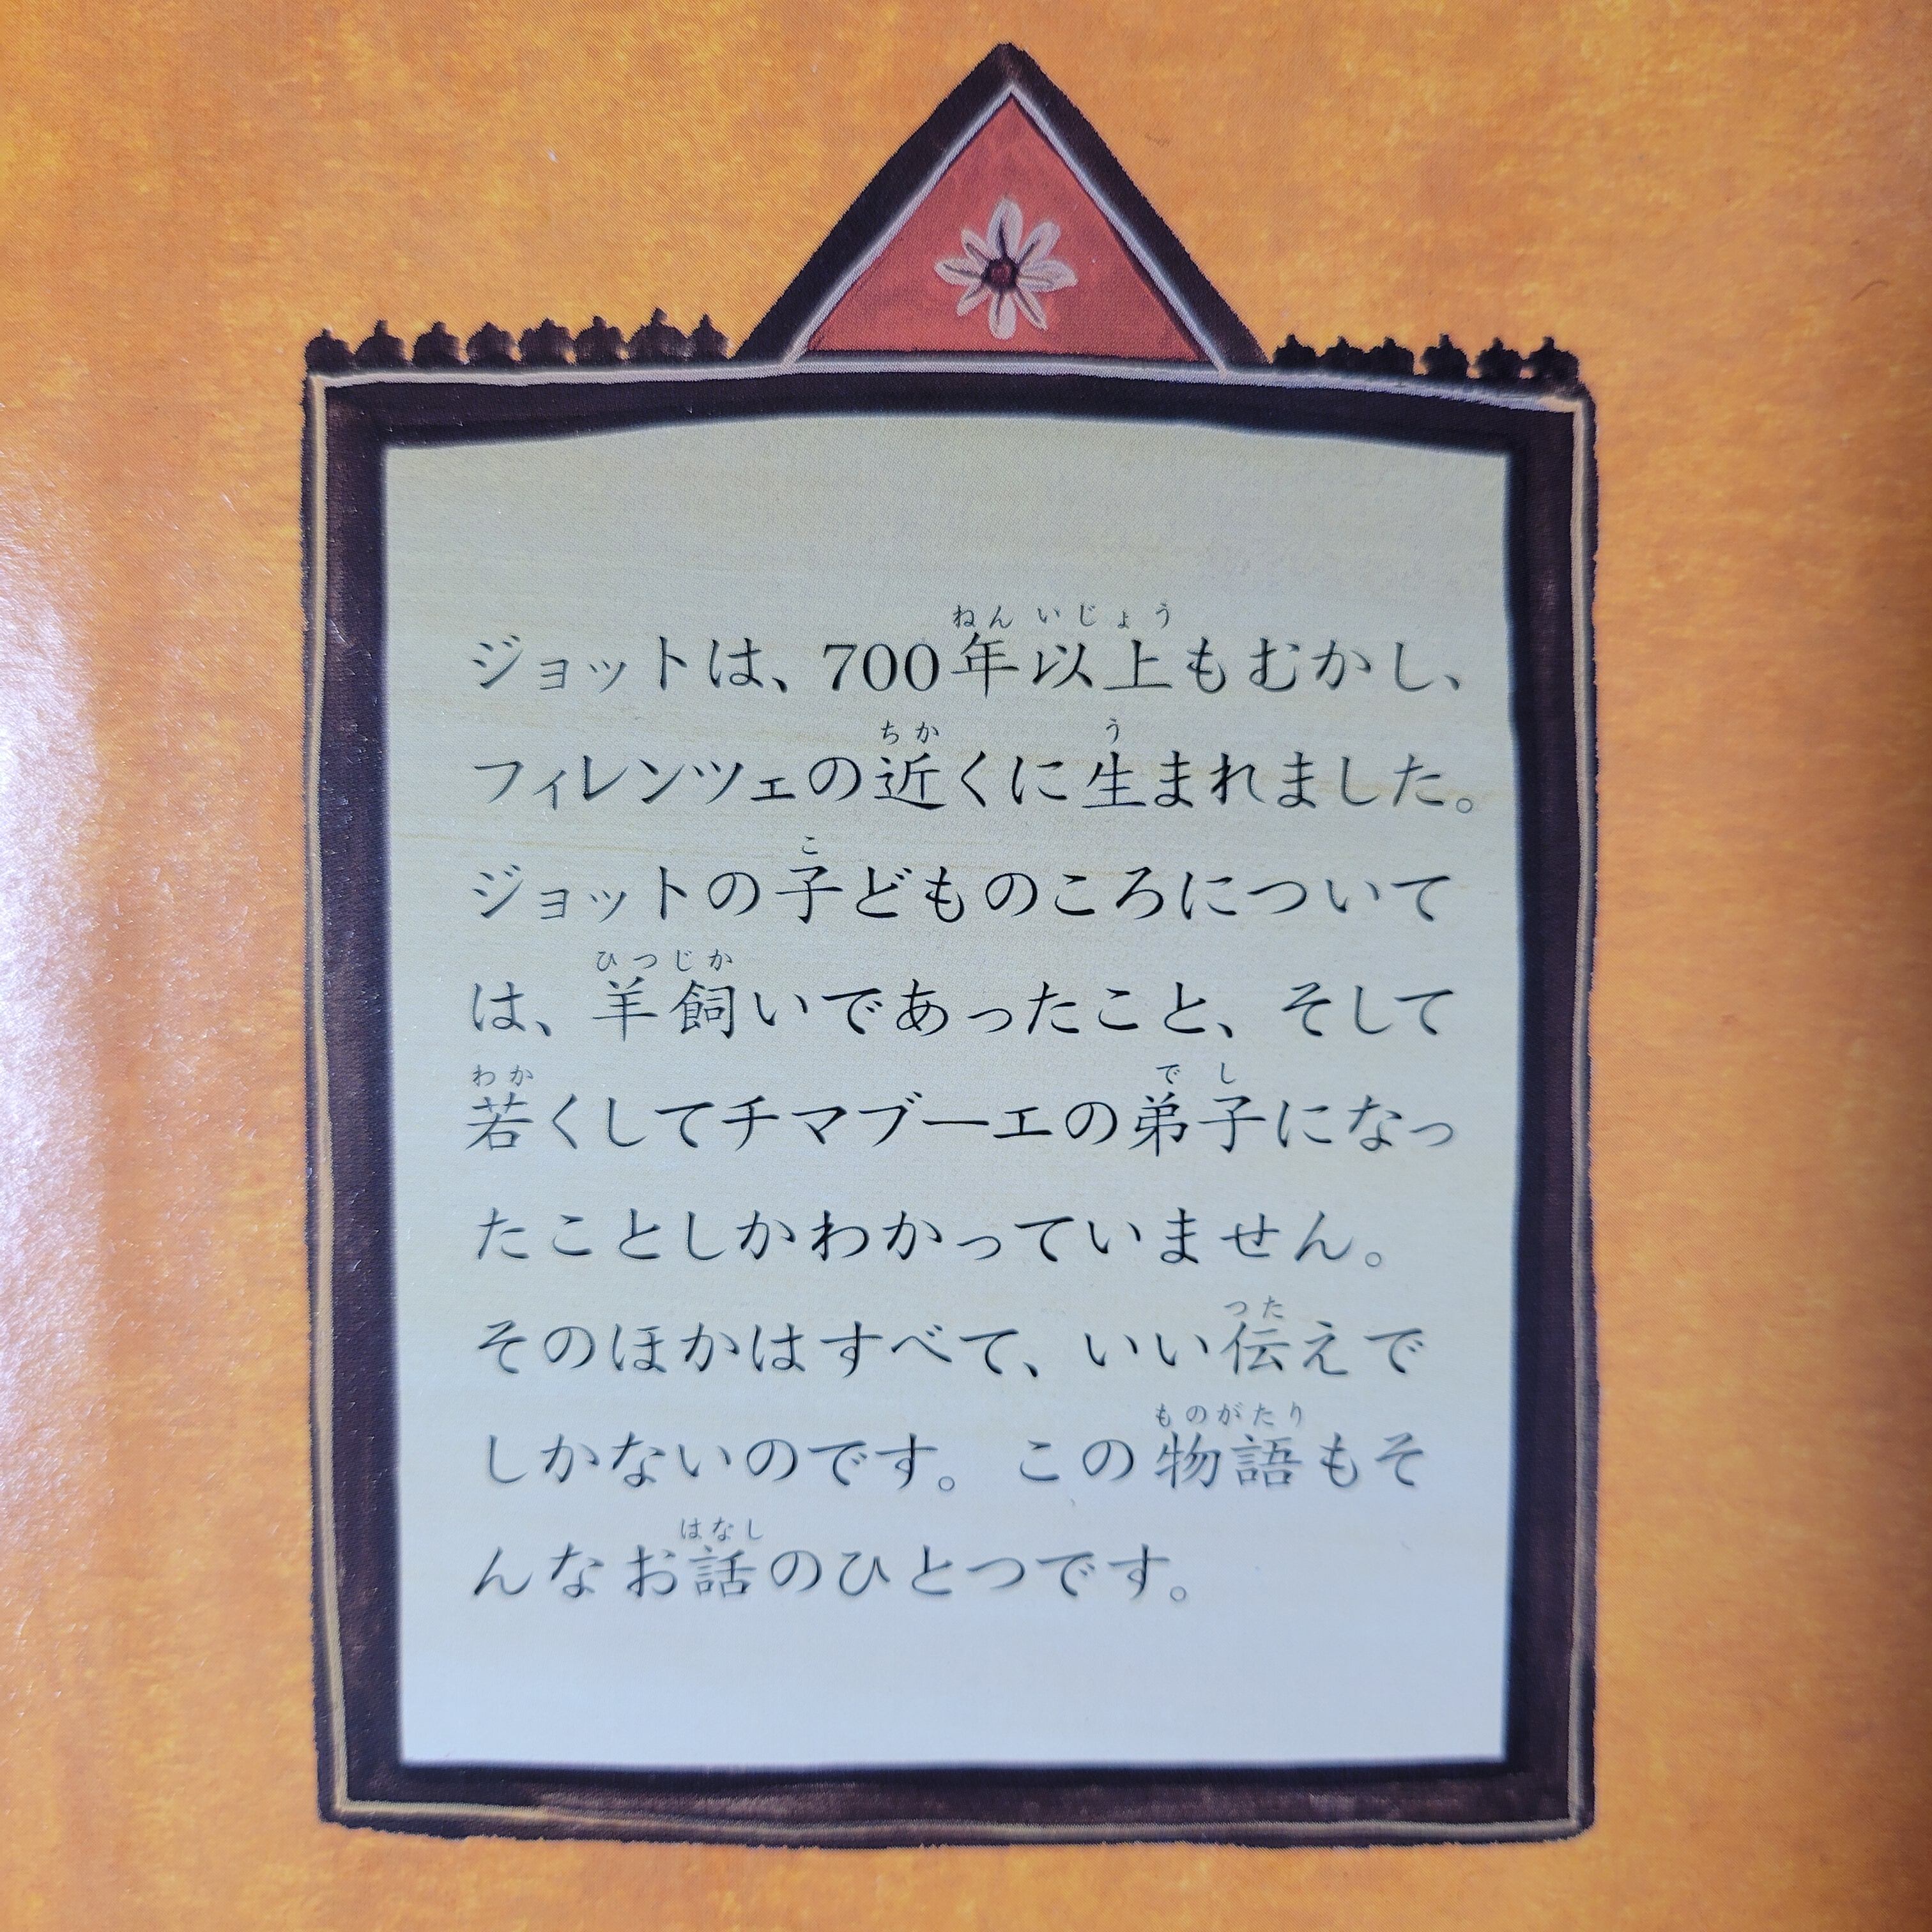 ジョットは、700年以上もむかし、
フィレンツェの近くに生まれました。
ジョットの子どものころについて
は、羊飼いであったこと、そして
若くしてチマブーエの弟子になっ
たことしかわかっていません。
そのほかはすべて、いい伝えで
しかないのです。この物語もそ
んなお話のひとつです。